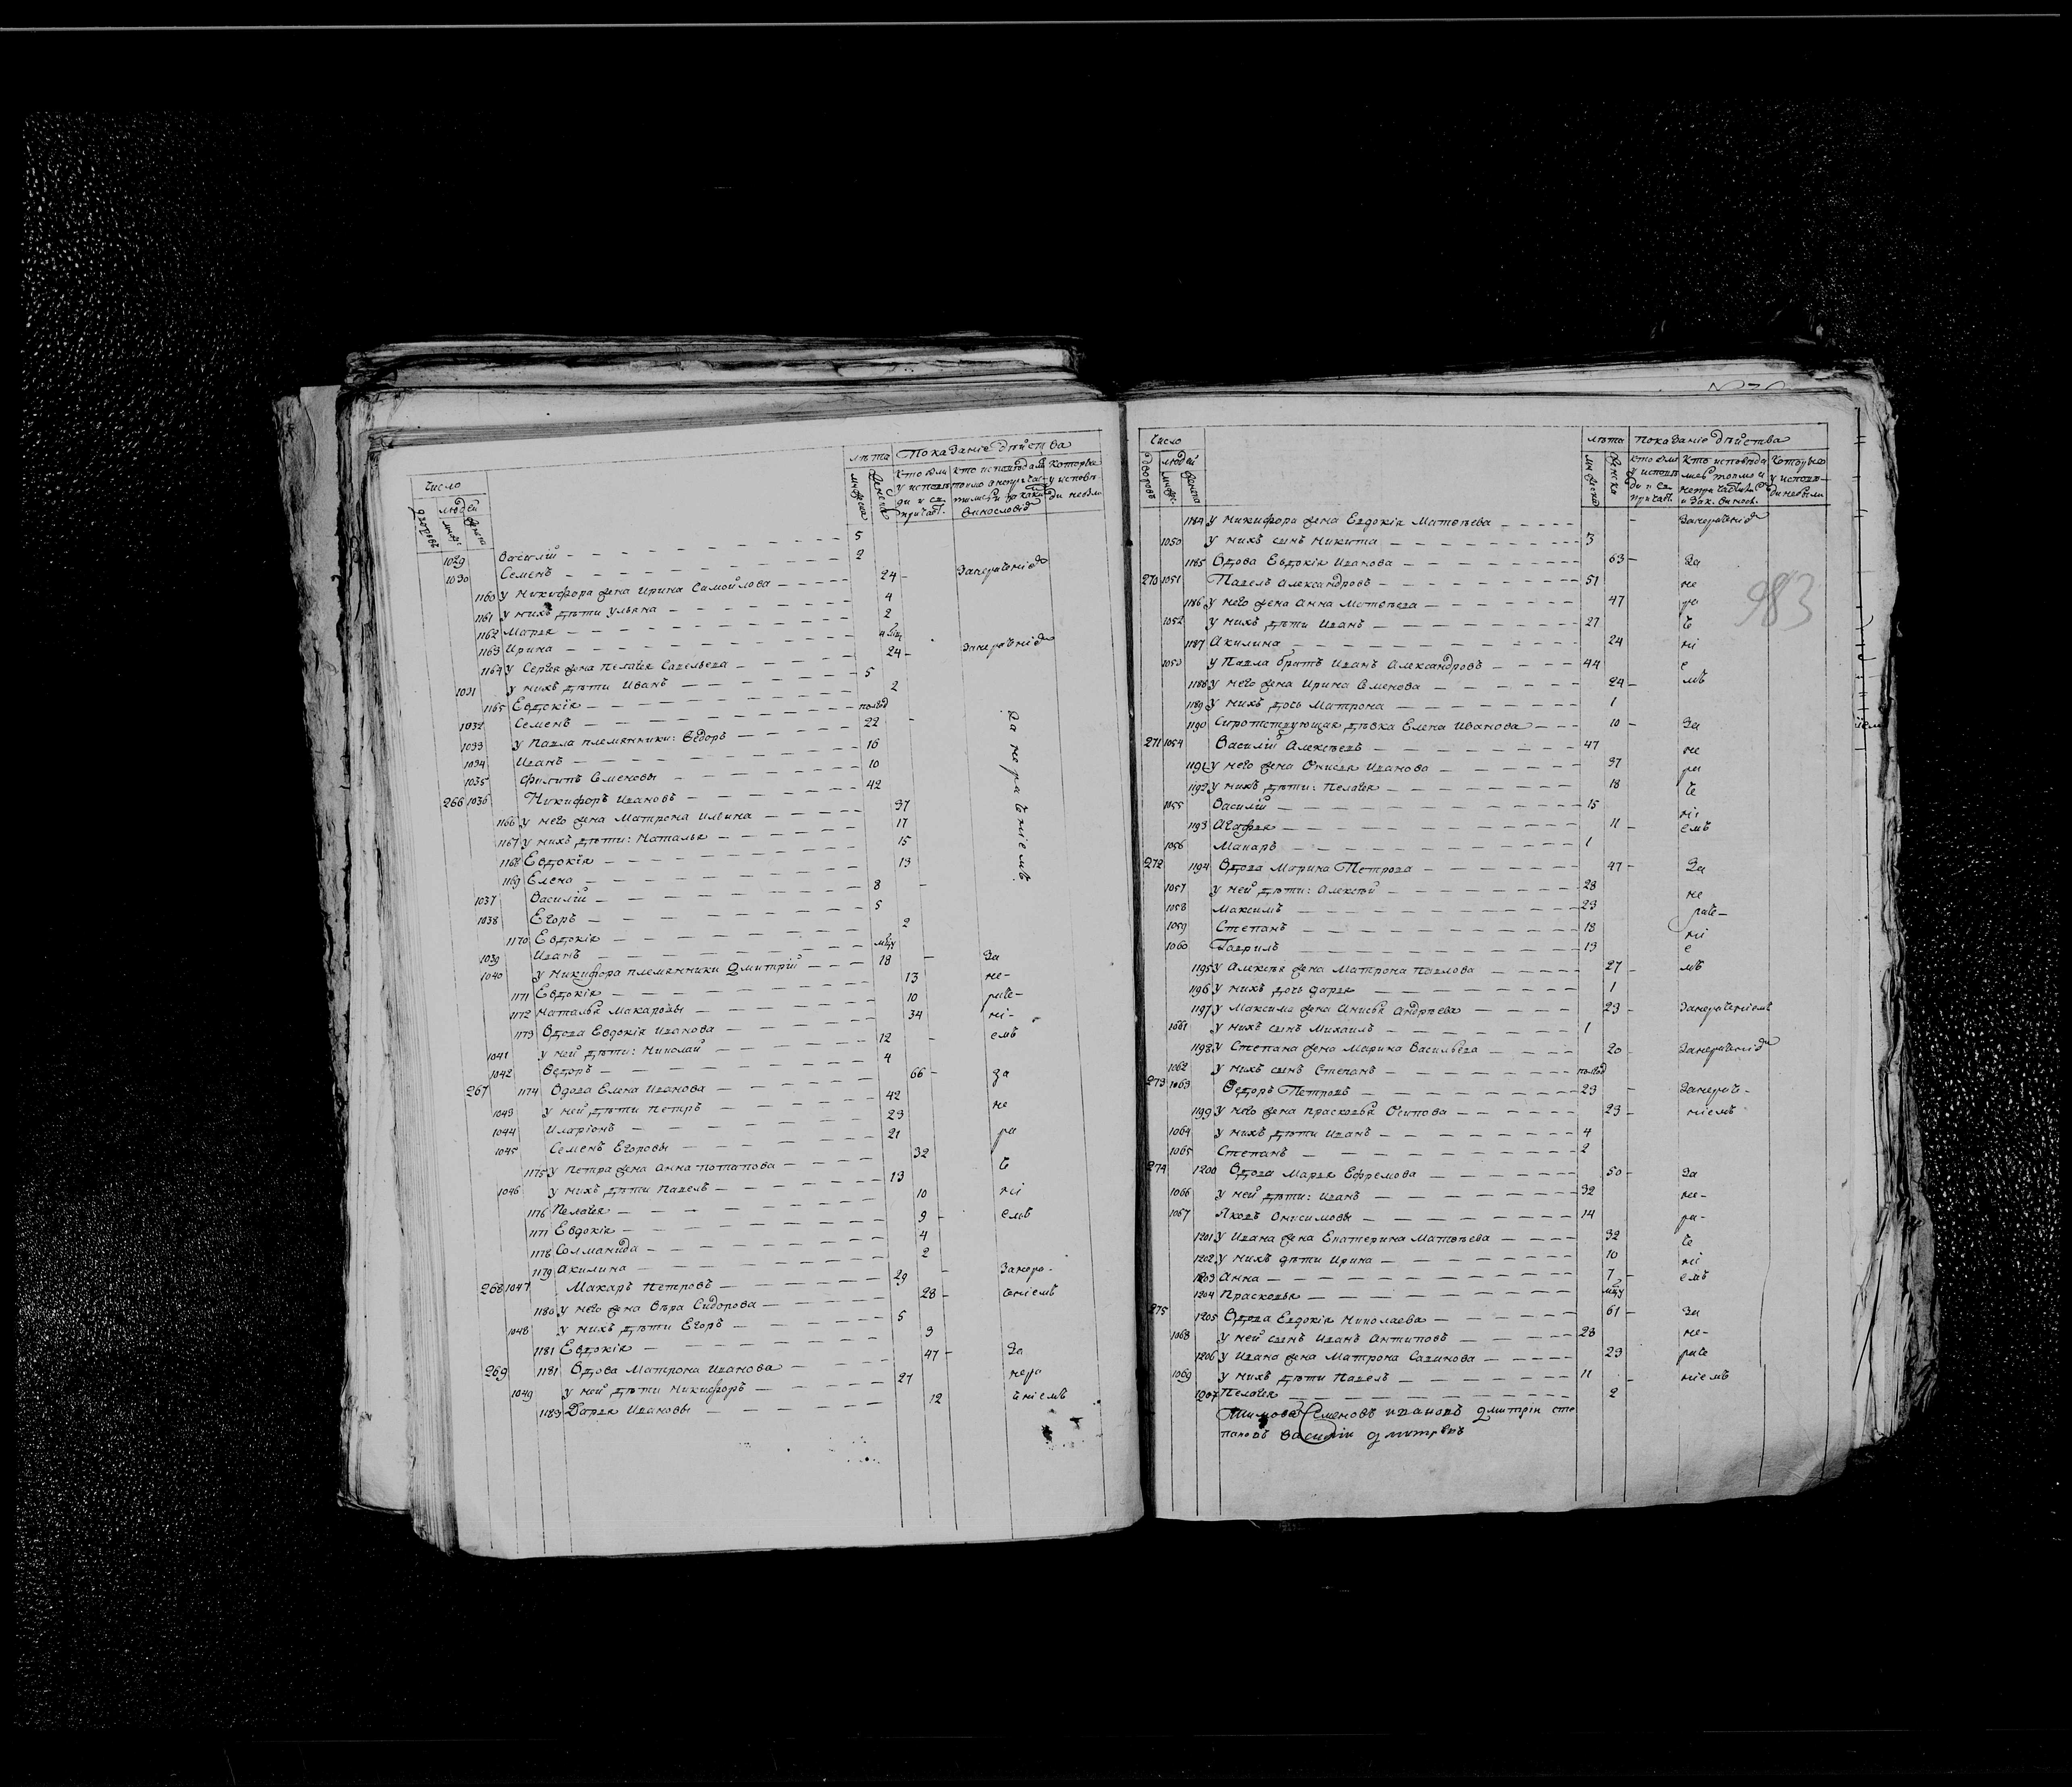 Число
лѣта Показаніе дѣйства
дворовъ людей
мужеска женска
кто были у исповѣди и св. причаст.
1029 Василій 5
1030 Семенъ 2
1160 у Никифора жена Ирина Самойлова 24 Занераченіе
1161 у нихъ дѣти Ульяна 4
1162 Марѳа 2
1163 Ирина
1164 у Сергѣя жена Пелагея Савельева 24 Занераченіе
1031 у нихъ дѣти Иванъ 5
1165 Евдокія 2
1032 Семенъ полгод
1033 у Павла племянники: Ѳедоръ 22
1034 Иванъ 16
1035 Филипъ Семеновы 10
266 1036 Никифоръ Ивановъ 42
1166 у него жена Матрона Ильина 37
1167 у нихъ дѣти: Наталья 17
1168 Евдокія 15
1169 Елена 13
1037 Василій 8
1038 Егоръ 5
1170 Евдокія 2
1039 Иванъ
1040 у Никифора племянники Дмитрій 18 За
1171 Евдокія 13 не-
1172 Наталья Макаровы 10 раче-
1173 Вдова Евдокія Иванова 34 ні-
1041 у ней дѣти: Николай 12 емъ
1042 Ѳедоръ 4
267 1174 Вдова Елена Иванова 66 за
1043 у ней дѣти Петръ 42
1044 Иларіонъ 23 не
1045 Семенъ Егоровы 21 ра
1175 у Петра жена Анна Потапова 32 че
1046 у нихъ дѣти Павелъ 13
1176 Пелагея 10 ні
1177 Евдокія 9 емъ
1178 Соломанида 4
1179 Акилина 2
268 1047 Макаръ Петровъ 29 Занера-
1180 у него жена Вѣра Сидорова 28 ченіемъ
1048 у нихъ дѣти Егоръ 5
1181 Евдокія 3
269 1181 Вдова Матрона Иванова 47 За
1049 у ней дѣти Никифоръ 21 нера
1183 Дарья Ивановы 12 ченіемъ
За нераченіемъ
Число
лѣта показаніе дѣйства
дворовъ людей
мужеска женска
1184 у Никифора жена Евдокія Матвѣева Занераченіе
1050 у нихъ сынъ Никита 3
1185 Вдова Евдокія Иванова 63 За
270 1051 Павелъ Александровъ 51 не
1186 у него жена Анна Матвѣева 47 ра
1052 у нихъ дѣти Иванъ 27 че
1187 Акилина 24 ні
1053 у Павла братъ Иванъ Александровъ 44 е
1188 у него жена Ирина Семенова 24 мъ
1189 у нихъ дочь Матрона 1
1190 Сиротствующая дѣвка Елена Иванова 10 За
271 1054 Василій Алексѣевъ 47 не
1191 у него жена Онисья Иванова 37 ра
1192 у нихъ дѣти: Пелагея 18 че
1055 Василій 15 ні
1193 Агафья 11 емъ
1056 Макаръ 1
272 1194 Вдова Марина Петрова 47 За
1057 у ней дѣти: Алексѣй 28 не
1058 Максимъ 23 раче-
1059 Степанъ 18 ні
1060 Гаврилъ 13 е
1195 у Алексѣя жена Матрона Павлова 27 мъ
1196 у нихъ дочь Дарья 1
1197 у Максима жена Анисья Андрѣева 23 Занераченіемъ
1061 у нихъ сынъ Михаилъ 1
1198 у Степана жена Марина Васильева 20 Занераченіе
1062 у нихъ сынъ Степанъ полгод
273 1063 Ѳедоръ Петровъ 23 Занераче-
1199 у него жена Прасковья Осипова 23 ніемъ
1064 у нихъ дѣти Иванъ 4
1065 Степанъ 2
274 1200 Вдова Марья Ефремова 50 За
1066 у ней дѣти: Иванъ 32 не-
1067 Яковъ Онисимовы 14 ра-
1201 у Ивана жена Екатерина Матвѣева 32 че
1202 у нихъ дѣти Ирина 10 ні
1203 Анна 7 емъ
1204 Прасковья
275 1205 Вдова Евдокія Николаева 61 За
1068 у ней сынъ Иванъ Антиповъ 28 не-
1206 у Ивана жена Матрона Савинова 23 раче
1069 у нихъ дѣти Павелъ 11 ніемъ
1207 Пелагея 2
Семеновъ Ивановъ Дмитріи Сте
пановъ Василіи
983